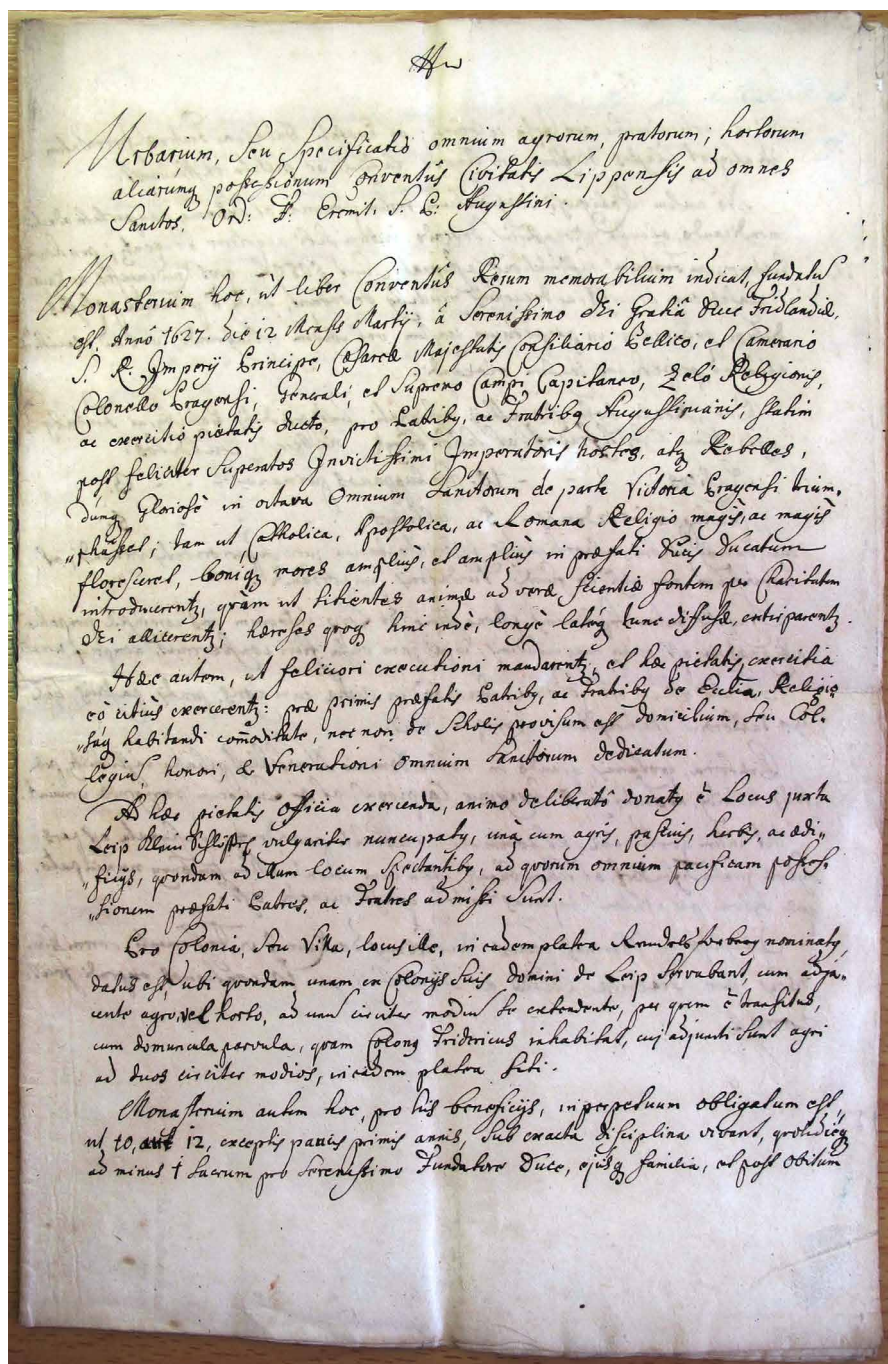 Urbarium, seu Specificatio omnium agrorum, pratorum, hortorum
aliarumq possessionum Conventûs Civitatis Lippensis ad omnes
Sanctos. Ord: F: Eremit: S. P: Augustini.
Monasterium hoc, ut liber Conventûs Rerum memorabilium indicat, fundatu͞
est, Annô 1627. die 12 Mensis Martij, â Serenissimo Dei Gratiâ Duce Fridlandiæ,
S. R. Imperij Principe, Cæsareæ Majestatis Consiliariô Bellico, et Camerario
Colonello Pragensi, Generali, et Supremo Campi Capitaneo, Zelô Religionis,
ac exercitiô pietatis ducto, pro Patribq, ac Fratribq Augustinianis, statim
post feliciter Superatos Invictissimi Imperatoris hostes, atq Rebelles,
dumq Gloriosè in octava Omnium Sanctorum de parta Victoria Pragensi trium-
„phasset; tam ut Catholica, Apostolica, ac Romana Religio magis, ac magis
floresceret, boniq mores ampliùs, et ampliùs in præfati Ducis Ducatum
introducerentq, quàm ut sitientes animæ ad veræ scientiæ fontem per Charitatem
Dei allicerentq; hæreses qvoq hinc indè, longè latéq tunc diffusæ, extirparentq.
Hæc autem, ut feliciori executioni mandarentq, et hæ pietatis exercitia
eò citiùs exercerentq: præ primis præfatis Patribq, ac Fratribq de Ecclia, Religio-
„sâq habitandi com̄oditate, nec non de Scholis provisum est domicilium, seu Col-
legiu͞, honori, & Venerationi omnium Sanctorum dedicatum.
Ad hæc pietatis officia exercenda, animo deliberatô donatq ê Locus juxta
Leip Klein Schlössel vulgariter nuncupatq, unà cum agris, pascuis, herbis, ac ædi„
„ficijs, qvondam ad illum locum spectantibq, ad qvorum omnium pacificam posses-
„sionem præfati Patres, ac Fratres admissi sunt.
Pro Colonia, seu Villa, locus ille, in eadem platea nominatq,
datus est, ubi qvondam unam ex Colonijs suis domini de Leip servabant, cum adja-
cente agro, vel horto, ad unu͞ circiter modiu͞ se extendente, per qvem ê transitus,
cum domuncula parvula, qvam Colonq Fridericus inhabitat, cuj adjuncti sunt agri
ad duos circiter modios, in eadem platea siti.
Monasterium autem hoc, pro his beneficijs, in perpetuum obligatum est,
ut 10, aut 12, exceptis paucis primis annis, sub exacta disciplina vivant, qvotidieq
ad minus 1 Sacrum pro Serenissimo Fundatore Duce, ejusq familia, et post obitum